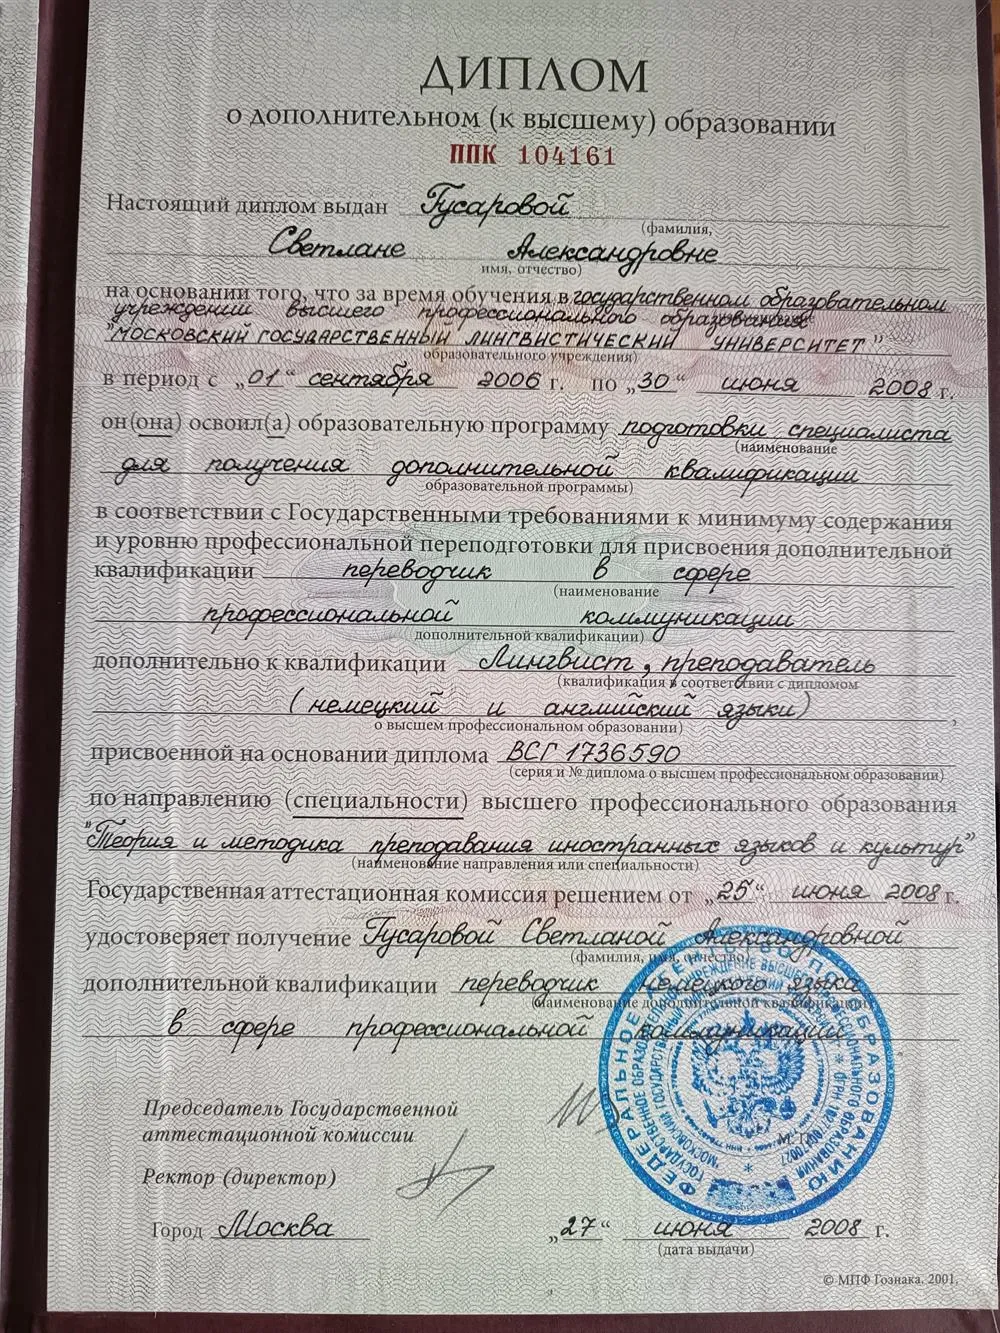 ДИПЛОМ
о дополнительном (к высшему) образовании
ППК 104161
Настоящий диплом выдан Гусаровой
(фамилия,
Светлане Александровне
имя, отчество)
на основании того, что за время обучения в государственном образовательном
учреждении высшего профессионального образования
"МОСКОВСКИЙ ГОСУДАРСТВЕННЫЙ ЛИНГВИСТИЧЕСКИЙ УНИВЕРСИТЕТ"
образовательного учреждения)
в период с „01“ сентября 2006 г. по „30“ июня 2008 г.
он(она) освоил(а) образовательную программу подготовки специалиста
(наименование
для получения дополнительной квалификации
образовательной программы)
в соответствии с Государственными требованиями к минимуму содержания
и уровню профессиональной переподготовки для присвоения дополнительной
квалификации переводчик в сфере
(наименование
профессиональной коммуникации
дополнительной квалификации)
дополнительно к квалификации Лингвист, преподаватель
(квалификация в соответствии с дипломом
(немецкий и английский языки),
о высшем профессиональном образовании)
присвоенной на основании диплома ВСГ 1736590
(серия и № диплома о высшем профессиональном образовании)
по направлению (специальности) высшего профессионального образования
"Теория и методика преподавания иностранных языков и культур"
(наименование направления или специальности)
Государственная аттестационная комиссия решением от „25“ июня 2008 г.
удостоверяет получение Гусаровой Светланой Александровной
(фамилия, имя, отчество)
дополнительной квалификации переводчик немецкого языка
(наименование дополнительной квалификации)
в сфере профессиональной коммуникации
ФЕДЕРАЛЬНОЕ АГЕНТСТВО ПО ОБРАЗОВАНИЮ
Председатель Государственной
аттестационной комиссии
М.П.
Ректор (директор)
Город Москва „27“ июня 2008 г.
(дата выдачи)
© МПФ Гознака. 2001.